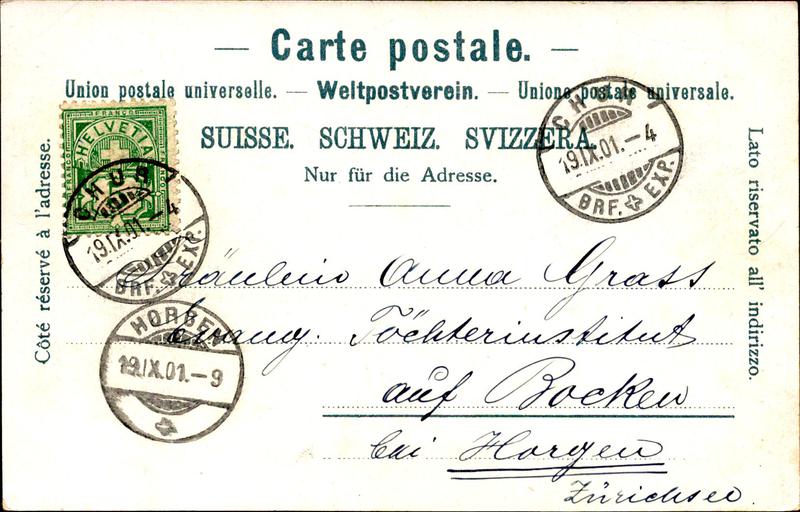 — Carte postale. —
Union postale universelle. — Weltpostverein. — Unione postale universale.
SUISSE. SCHWEIZ. SVIZZERA.
Nur für die Adresse.
Côté réservé à l'adresse.
Lato riservato all' indirizzo.
FRANCO
HELVETIA
CHUR
19.IX.01.–4
BRF. EXP.
CHUR 1
19.IX.01.–4
BRF. EXP.
HORGEN
19.IX.01.–9
Fräulein Anna Grass
Evang. Töchterinstitut
auf Bocken
bei Horgen
Zürichsee.